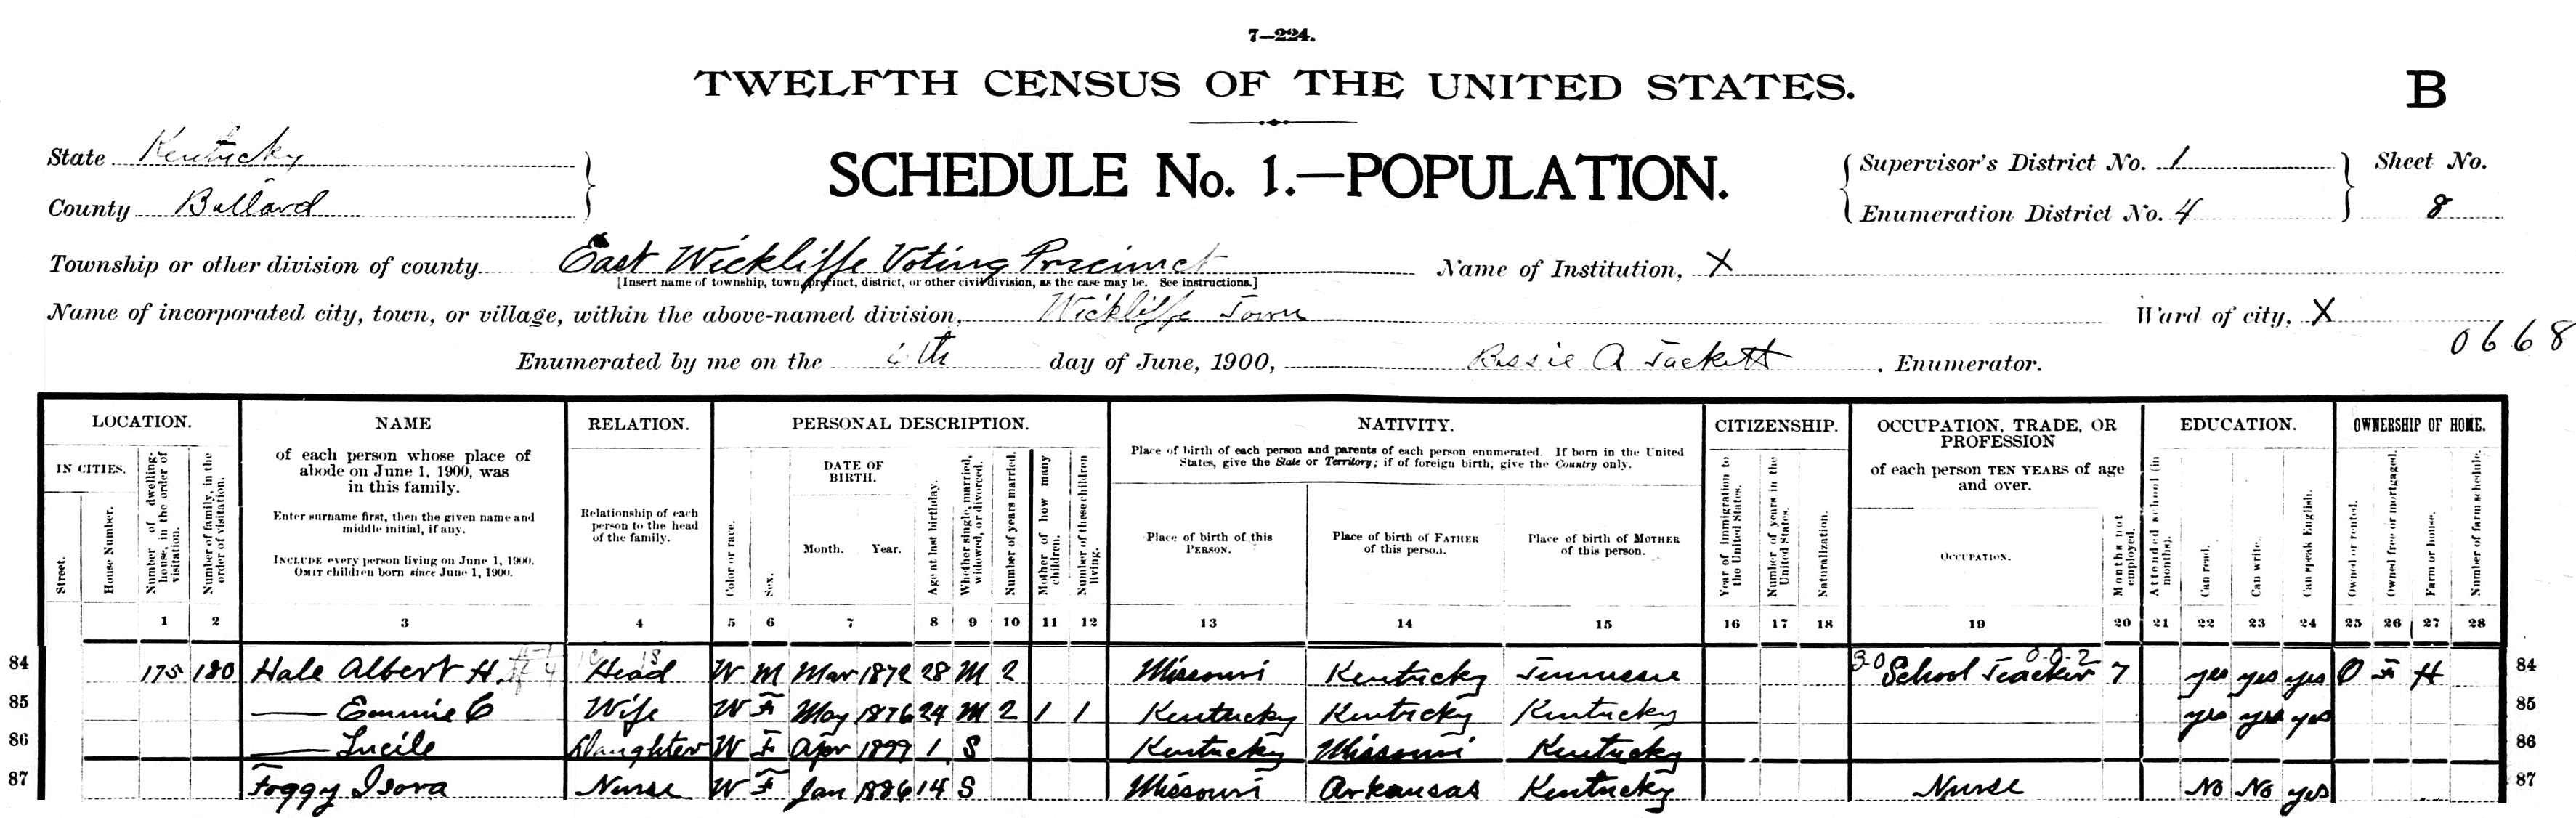 7—224.
TWELFTH CENSUS OF THE UNITED STATES.
B
State Kentucky
County Ballard
SCHEDULE No. 1.—POPULATION.
Supervisor's District No. 1
Enumeration District No. 4
Sheet No.
8
Township or other division of county East Wickliffe Voting Precinct
Name of Institution, X
[Insert name of township, town, precinct, district, or other civil division, as the case may be. See instructions.]
Name of incorporated city, town, or village, within the above-named division, Wickliffe Town
Ward of city, X
0668
Enumerated by me on the 6th day of June, 1900, Bessie A Tackett. Enumerator.
LOCATION.
IN CITIES.
Street.
House Number.
Number of dwelling-house, in the order of visitation.
Number of family, in the order of visitation.
NAME
of each person whose place of
abode on June 1, 1900, was
in this family.
Enter surname first, then the given name and
middle initial, if any.
INCLUDE every person living on June 1, 1900.
OMIT children born since June 1, 1900.
RELATION.
Relationship of each
person to the head
of the family.
PERSONAL DESCRIPTION.
Color or race.
Sex.
DATE OF
BIRTH.
Month. Year.
Age at last birthday.
Whether single, married, widowed, or divorced.
Number of years married.
Mother of how many children.
Number of these children living.
NATIVITY.
Place of birth of each person and parents of each person enumerated. If born in the United
States, give the State or Territory; if of foreign birth, give the Country only.
Place of birth of this
PERSON.
Place of birth of FATHER
of this person.
Place of birth of MOTHER
of this person.
CITIZENSHIP.
Year of immigration to the United States.
Number of years in the United States.
Naturalization.
OCCUPATION, TRADE, OR
PROFESSION
of each person TEN YEARS of age
and over.
OCCUPATION.
Months not employed.
EDUCATION.
Attended school (in months).
Can read.
Can write.
Can speak English.
OWNERSHIP OF HOME.
Owned or rented.
Owned free or mortgaged.
Farm or house.
Number of farm schedule.
1 2 3 4 5 6 7 8 9 10 11 12 13 14 15 16 17 18 19 20 21 22 23 24 25 26 27 28
84 175 180 Hale Albert H. Head W M Mar 1872 28 M 2 Missouri Kentucky Tennessee School Teacher 7 yes yes yes O F H 84
85 —— Emmie C Wife W F May 1876 24 M 2 1 1 Kentucky Kentucky Kentucky yes yes yes 85
86 —— Lucile Daughter W F Apr 1899 1 S Kentucky Missouri Kentucky 86
87 Foggy Isora Nurse W F Jan 1886 14 S Missouri Arkansas Kentucky Nurse No No yes 87